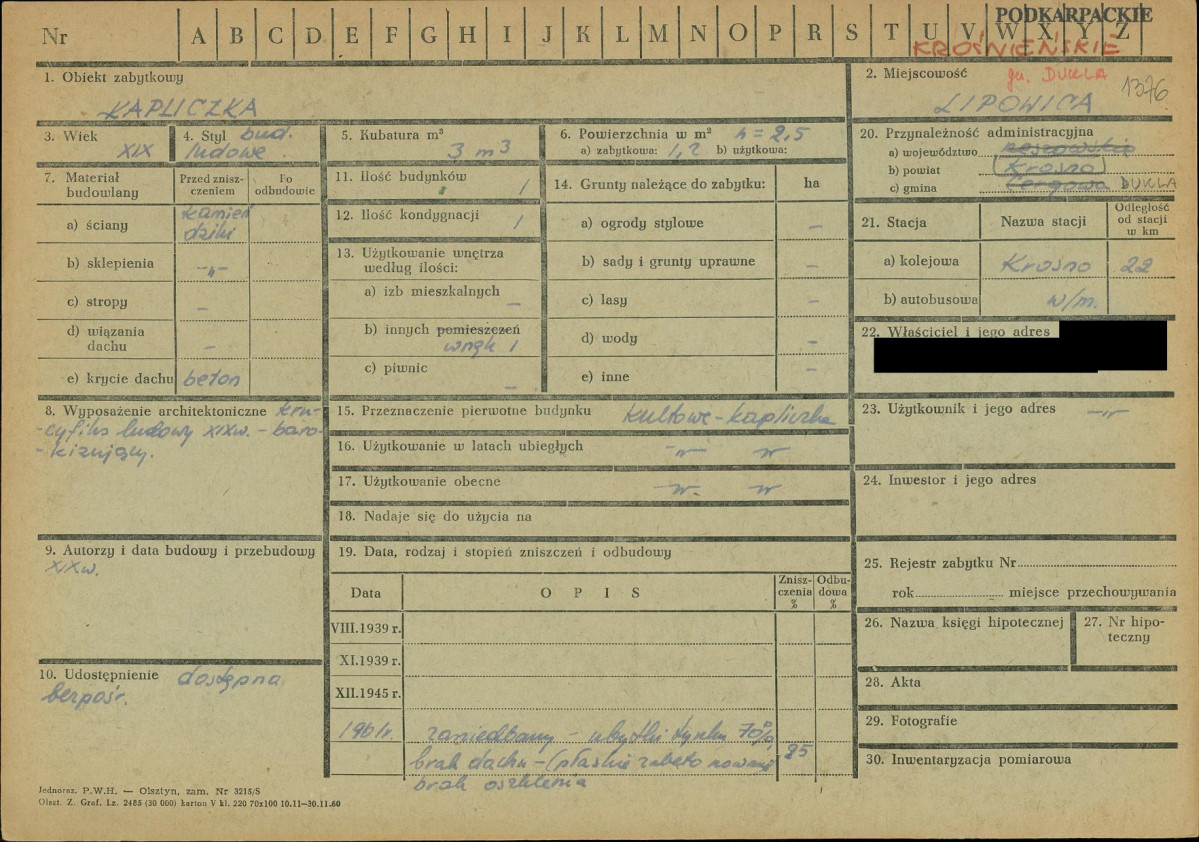 Nr A B C D E F G H I J K L M N O P R S T U V W X Y Z
PODKARPACKIE
KROŚNIEŃSKIE
gm. DUKLA
1376
1. Obiekt zabytkowy
KAPLICZKA
2. Miejscowość
LIPOWICA
3. Wiek
XIX
4. Styl bud.
ludowe
5. Kubatura m³
3 m3
6. Powierzchnia w m² h = 2,5
a) zabytkowa: 1,2 b) użytkowa:
7. Materiał budowlany
Przed znisz-
czeniem
Po
odbudowie
a) ściany
kamień
dziki
b) sklepienia -„-
c) stropy –
d) wiązania
dachu –
e) krycie dachu beton
8. Wyposażenie architektoniczne kru-
cyfiks ludowy XIXw. – baro-
-kizujący.
9. Autorzy i data budowy i przebudowy
XIXw.
10. Udostępnienie dostępna
bezpośr.
11. Ilość budynków 1
12. Ilość kondygnacji 1
13. Użytkowanie wnętrza
według ilości:
a) izb mieszkalnych –
b) innych pomieszczeń
wnęk 1
c) piwnic –
14. Grunty należące do zabytku: ha
a) ogrody stylowe –
b) sady i grunty uprawne –
c) lasy –
d) wody –
e) inne –
15. Przeznaczenie pierwotne budynku kultowe - kapliczka
16. Użytkowanie w latach ubiegłych -„- „
17. Użytkowanie obecne -„- „
18. Nadaje się do użycia na
19. Data, rodzaj i stopień zniszczeń i odbudowy
Data OPIS
Znisz-
czenia
%
Odbu-
dowa
%
VIII.1939 r.
XI.1939 r.
XII.1945 r.
1961r. zaniedbany – ubytki tynku 70%,
brak dachu – (płaskie zabetonowanie 25
brak oszklenia
20. Przynależność administracyjna
a) województwo rzeszowskie
b) powiat Krosno
c) gmina Cergowa DUKLA
21. Stacja Nazwa stacji
Odległość
od stacji
w km
a) kolejowa Krosno 22
b) autobusowa w/m.
22. Właściciel i jego adres
23. Użytkownik i jego adres -„-
24. Inwestor i jego adres
25. Rejestr zabytku Nr
rok miejsce przechowywania
26. Nazwa księgi hipotecznej
27. Nr hipo-
teczny
28. Akta
29. Fotografie
30. Inwentaryzacja pomiarowa
Jednoraz. P.W.H. — Olsztyn, zam. Nr 3215/S
Olszt. Z. Graf. Lz. 2485 (30 000) karton V kl. 220 70x100 10.11—30.11.60